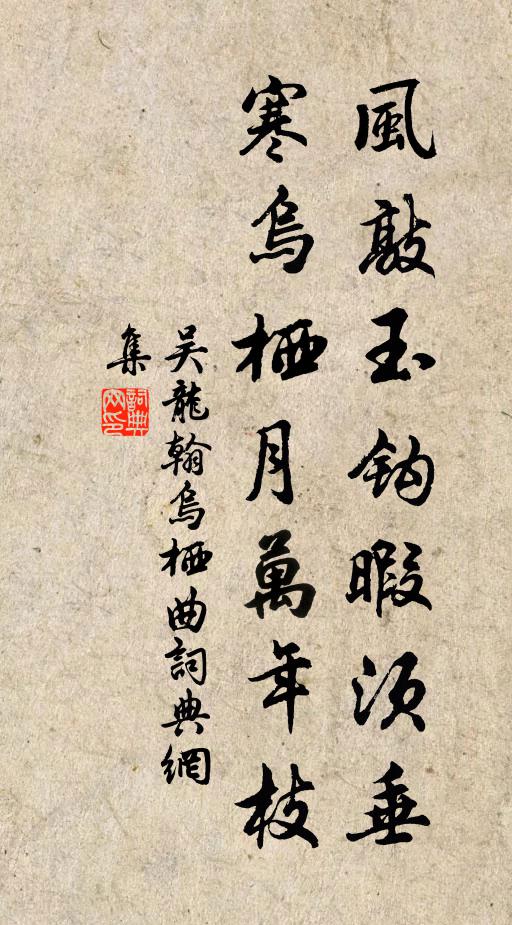 風敲玉鈎暇須垂
寒烏栖月萬年枝
吴龍翰烏栖曲詞典網
集
詞典網印